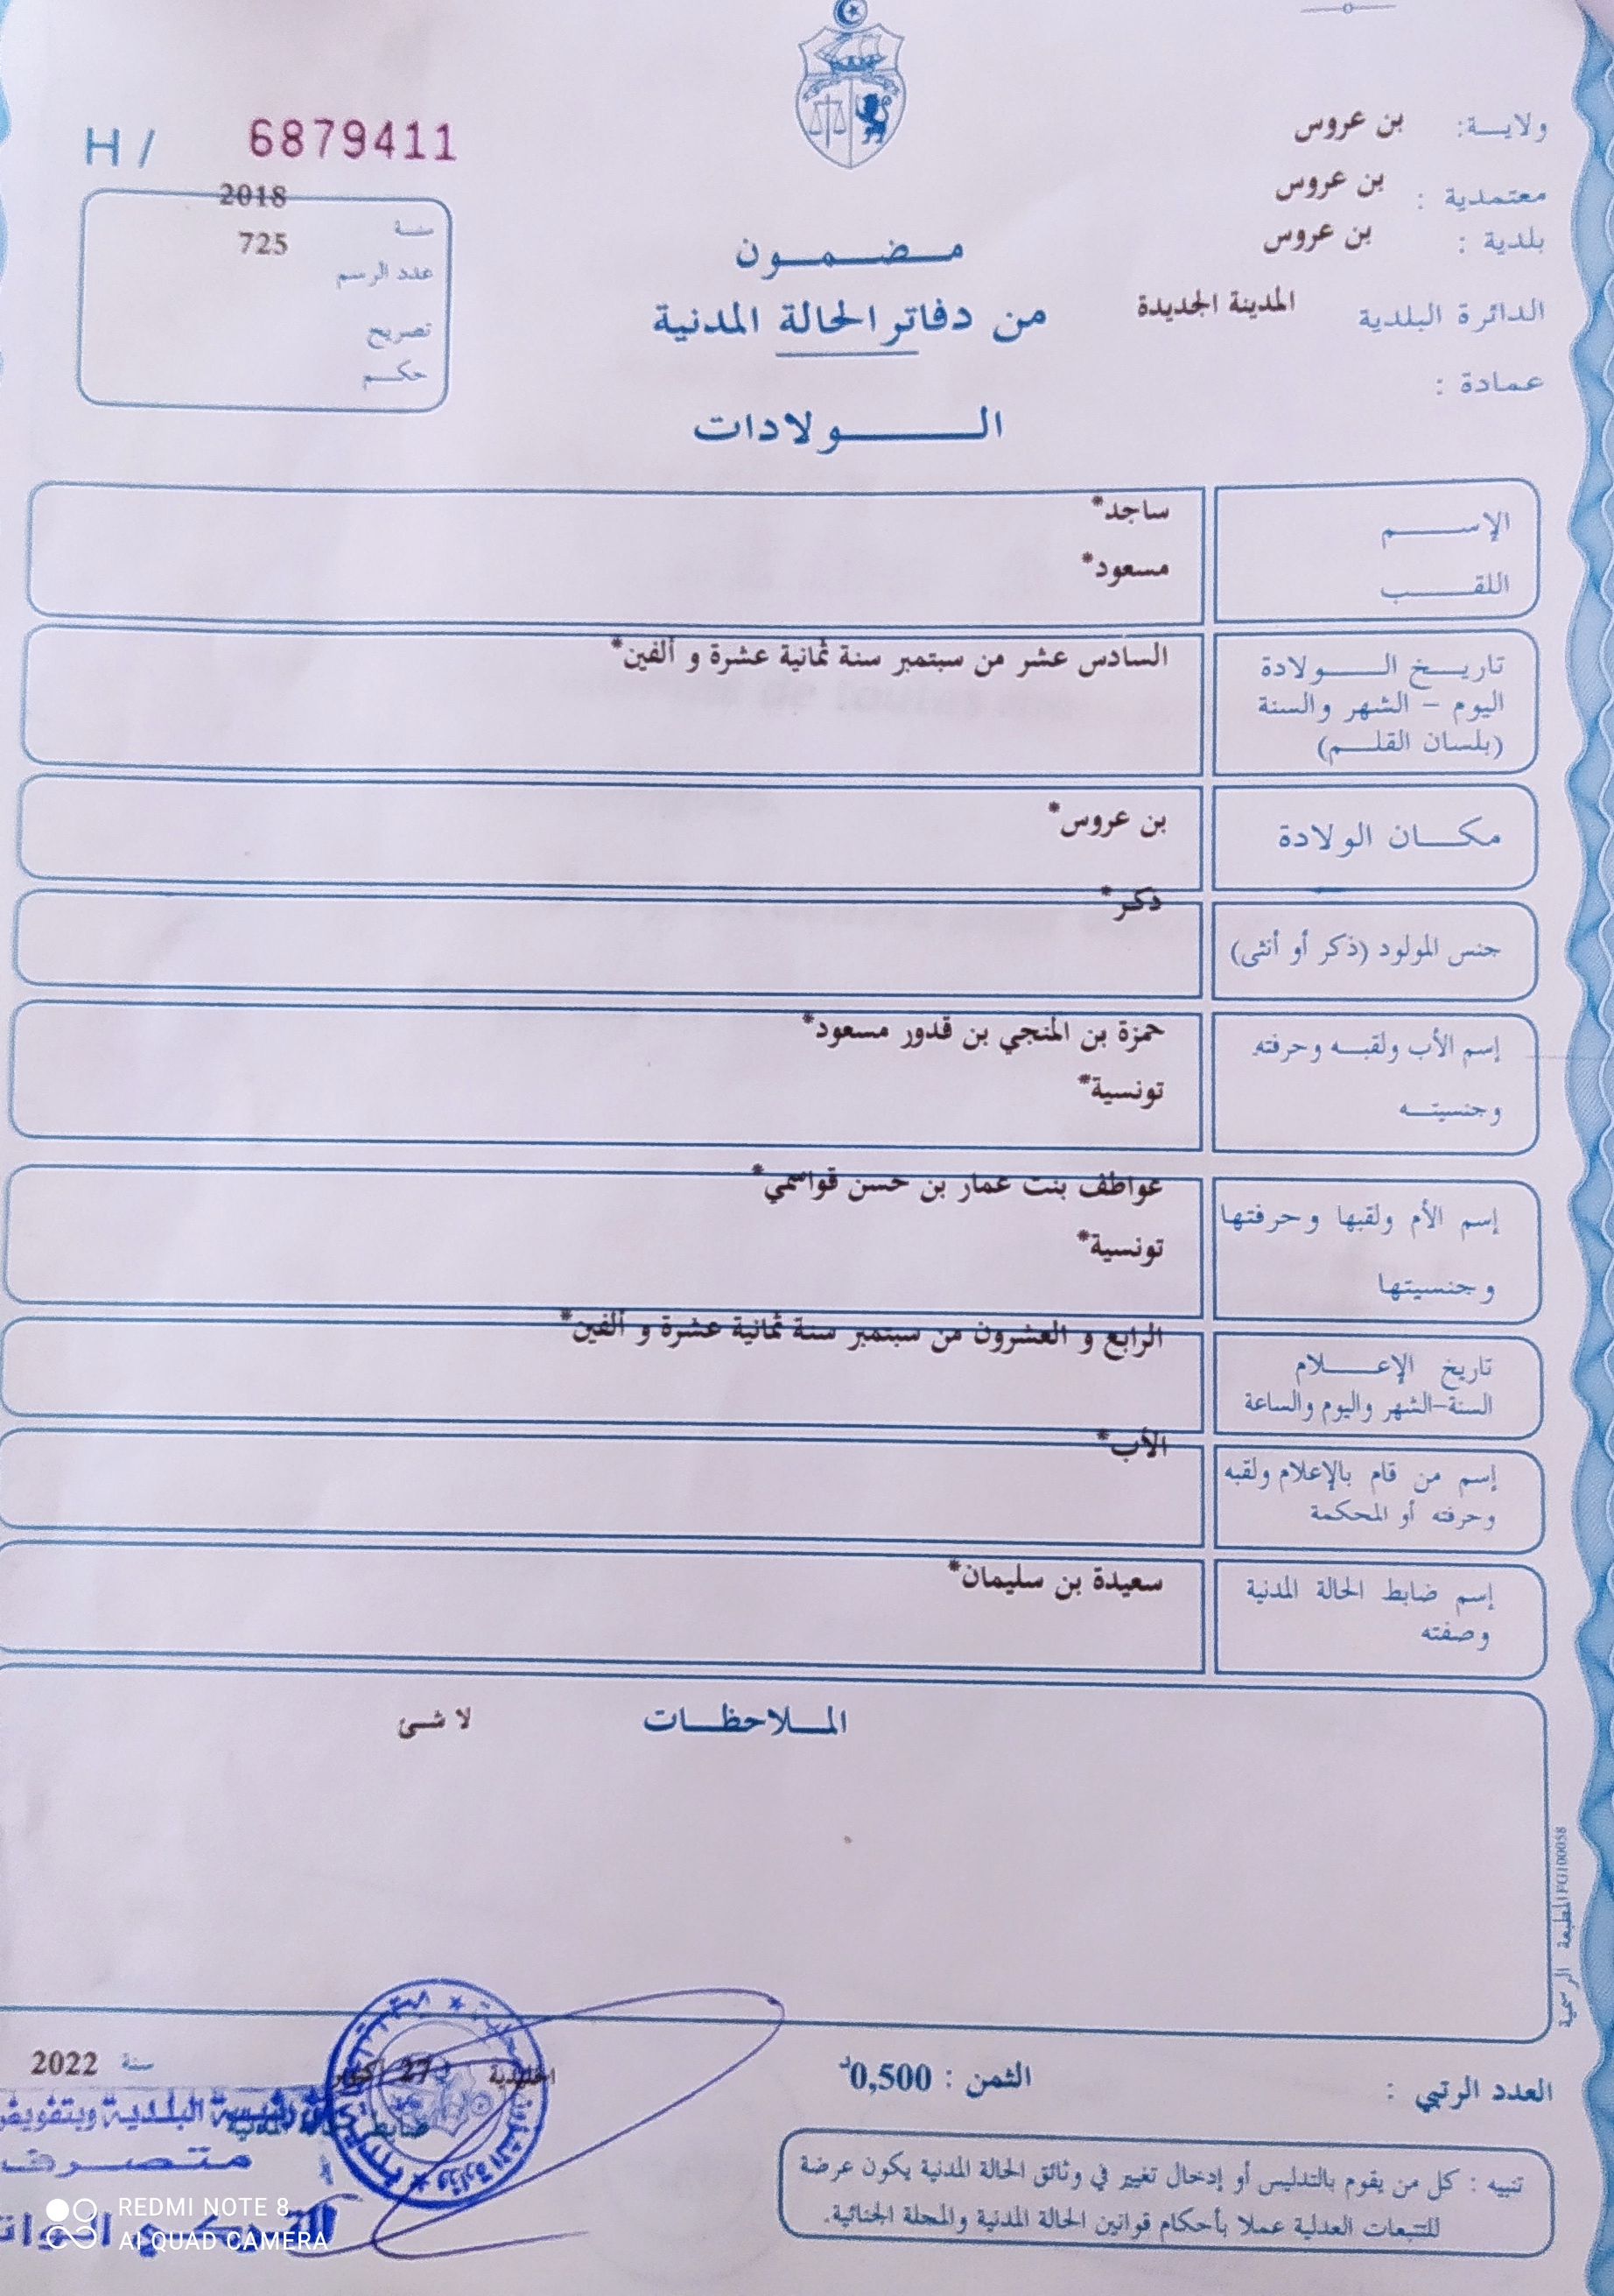 ولاية: بن عروس
معتمدية : بن عروس
بلدية : بن عروس
الدائرة البلدية المدينة الجديدة
عمادة :
مضمون
من دفاتر الحالة المدنية
الولادات
H / 6879411
سنة 2018
عدد الرسم 725
تصريح
حكم
الإسم ساجد*
اللقب مسعود*
تاريخ الولادة السادس عشر من سبتمبر سنة ثمانية عشرة و ألفين*
اليوم - الشهر والسنة
(بلسان القلم)
مكان الولادة بن عروس*
جنس المولود (ذكر أو أنثى) ذكر*
إسم الأب ولقبه وحرفته حمزة بن المنجي بن قدور مسعود*
وجنسيته تونسية*
إسم الأم ولقبها وحرفتها عواطف بنت عمار بن حسن قواسمي*
وجنسيتها تونسية*
تاريخ الإعلام الرابع و العشرون من سبتمبر سنة ثمانية عشرة و ألفين*
السنة-الشهر واليوم والساعة
إسم من قام بالإعلام ولقبه الأب*
وحرفته أو المحكمة
إسم ضابط الحالة المدنية سعيدة بن سليمان*
وصفته
الملاحظات لا شئ
المطبعة الرسمية FG100058
العدد الرتبي :
الثمن : 0,500د
27 أكتوبر سنة 2022
رئيسة البلدية وبتفويض
ضابط الحالة المدنية
متصرف
تنبيه : كل من يقوم بالتدليس أو إدخال تغيير في وثائق الحالة المدنية يكون عرضة
للتتبعات العدلية عملا بأحكام قوانين الحالة المدنية والمجلة الجنائية.
REDMI NOTE 8
AI QUAD CAMERA